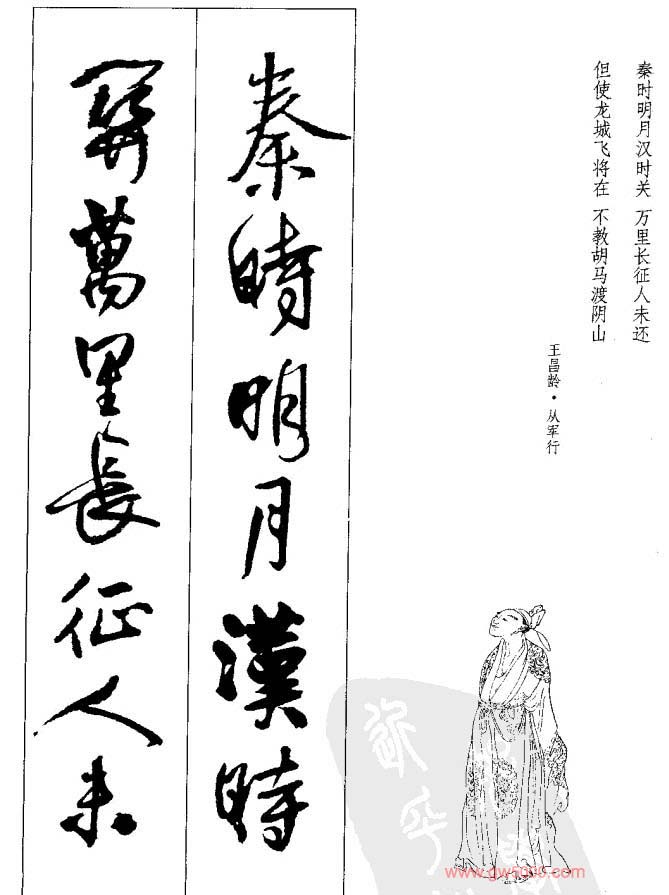 秦时明月汉时关 万里长征人未还
但使龙城飞将在 不教胡马渡阴山
王昌龄·从军行
秦時明月漢時
關萬里長征人未
www.gw5000.com